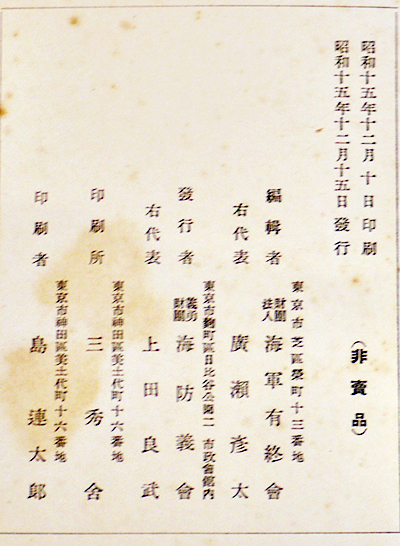 昭和十五年十二月 十日 印刷
昭和十五年十二月十五日 發行
(非賣品)
東京市芝區榮町十三番地
編輯者 財團法人 海軍有終會
右代表 廣瀨彦太
東京市麴町區日比谷公園二 市政會館內
發行者 財團義勇 海防義會
右代表 上田良武
東京市神田區美土代町十六番地
印刷所 三秀舍
東京市神田區美土代町十六番地
印刷者 島連太郎